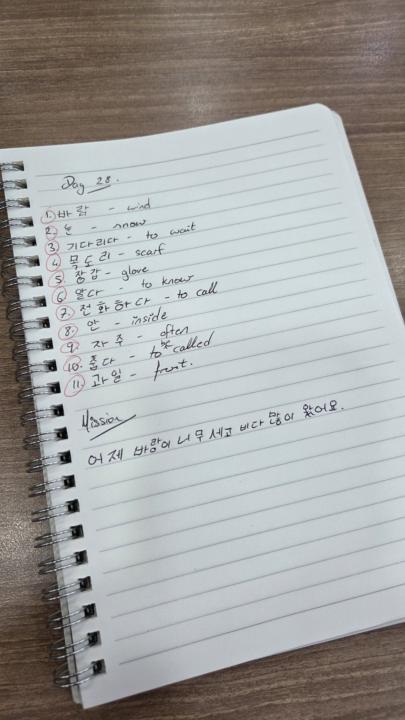 Day 28.
1. 바람 - wind
2. 눈 - snow
3. 기다리다 - to wait
4. 목도리 - scarf
5. 장갑 - glove
6. 알다 - to know
7. 전화하다 - to call
8. 안 - inside
9. 자주 - often
10. 춥다 - to called
11. 과일 - fruit.
Mission
어제 바람이 너무 세고 비다 많이 왔어요.